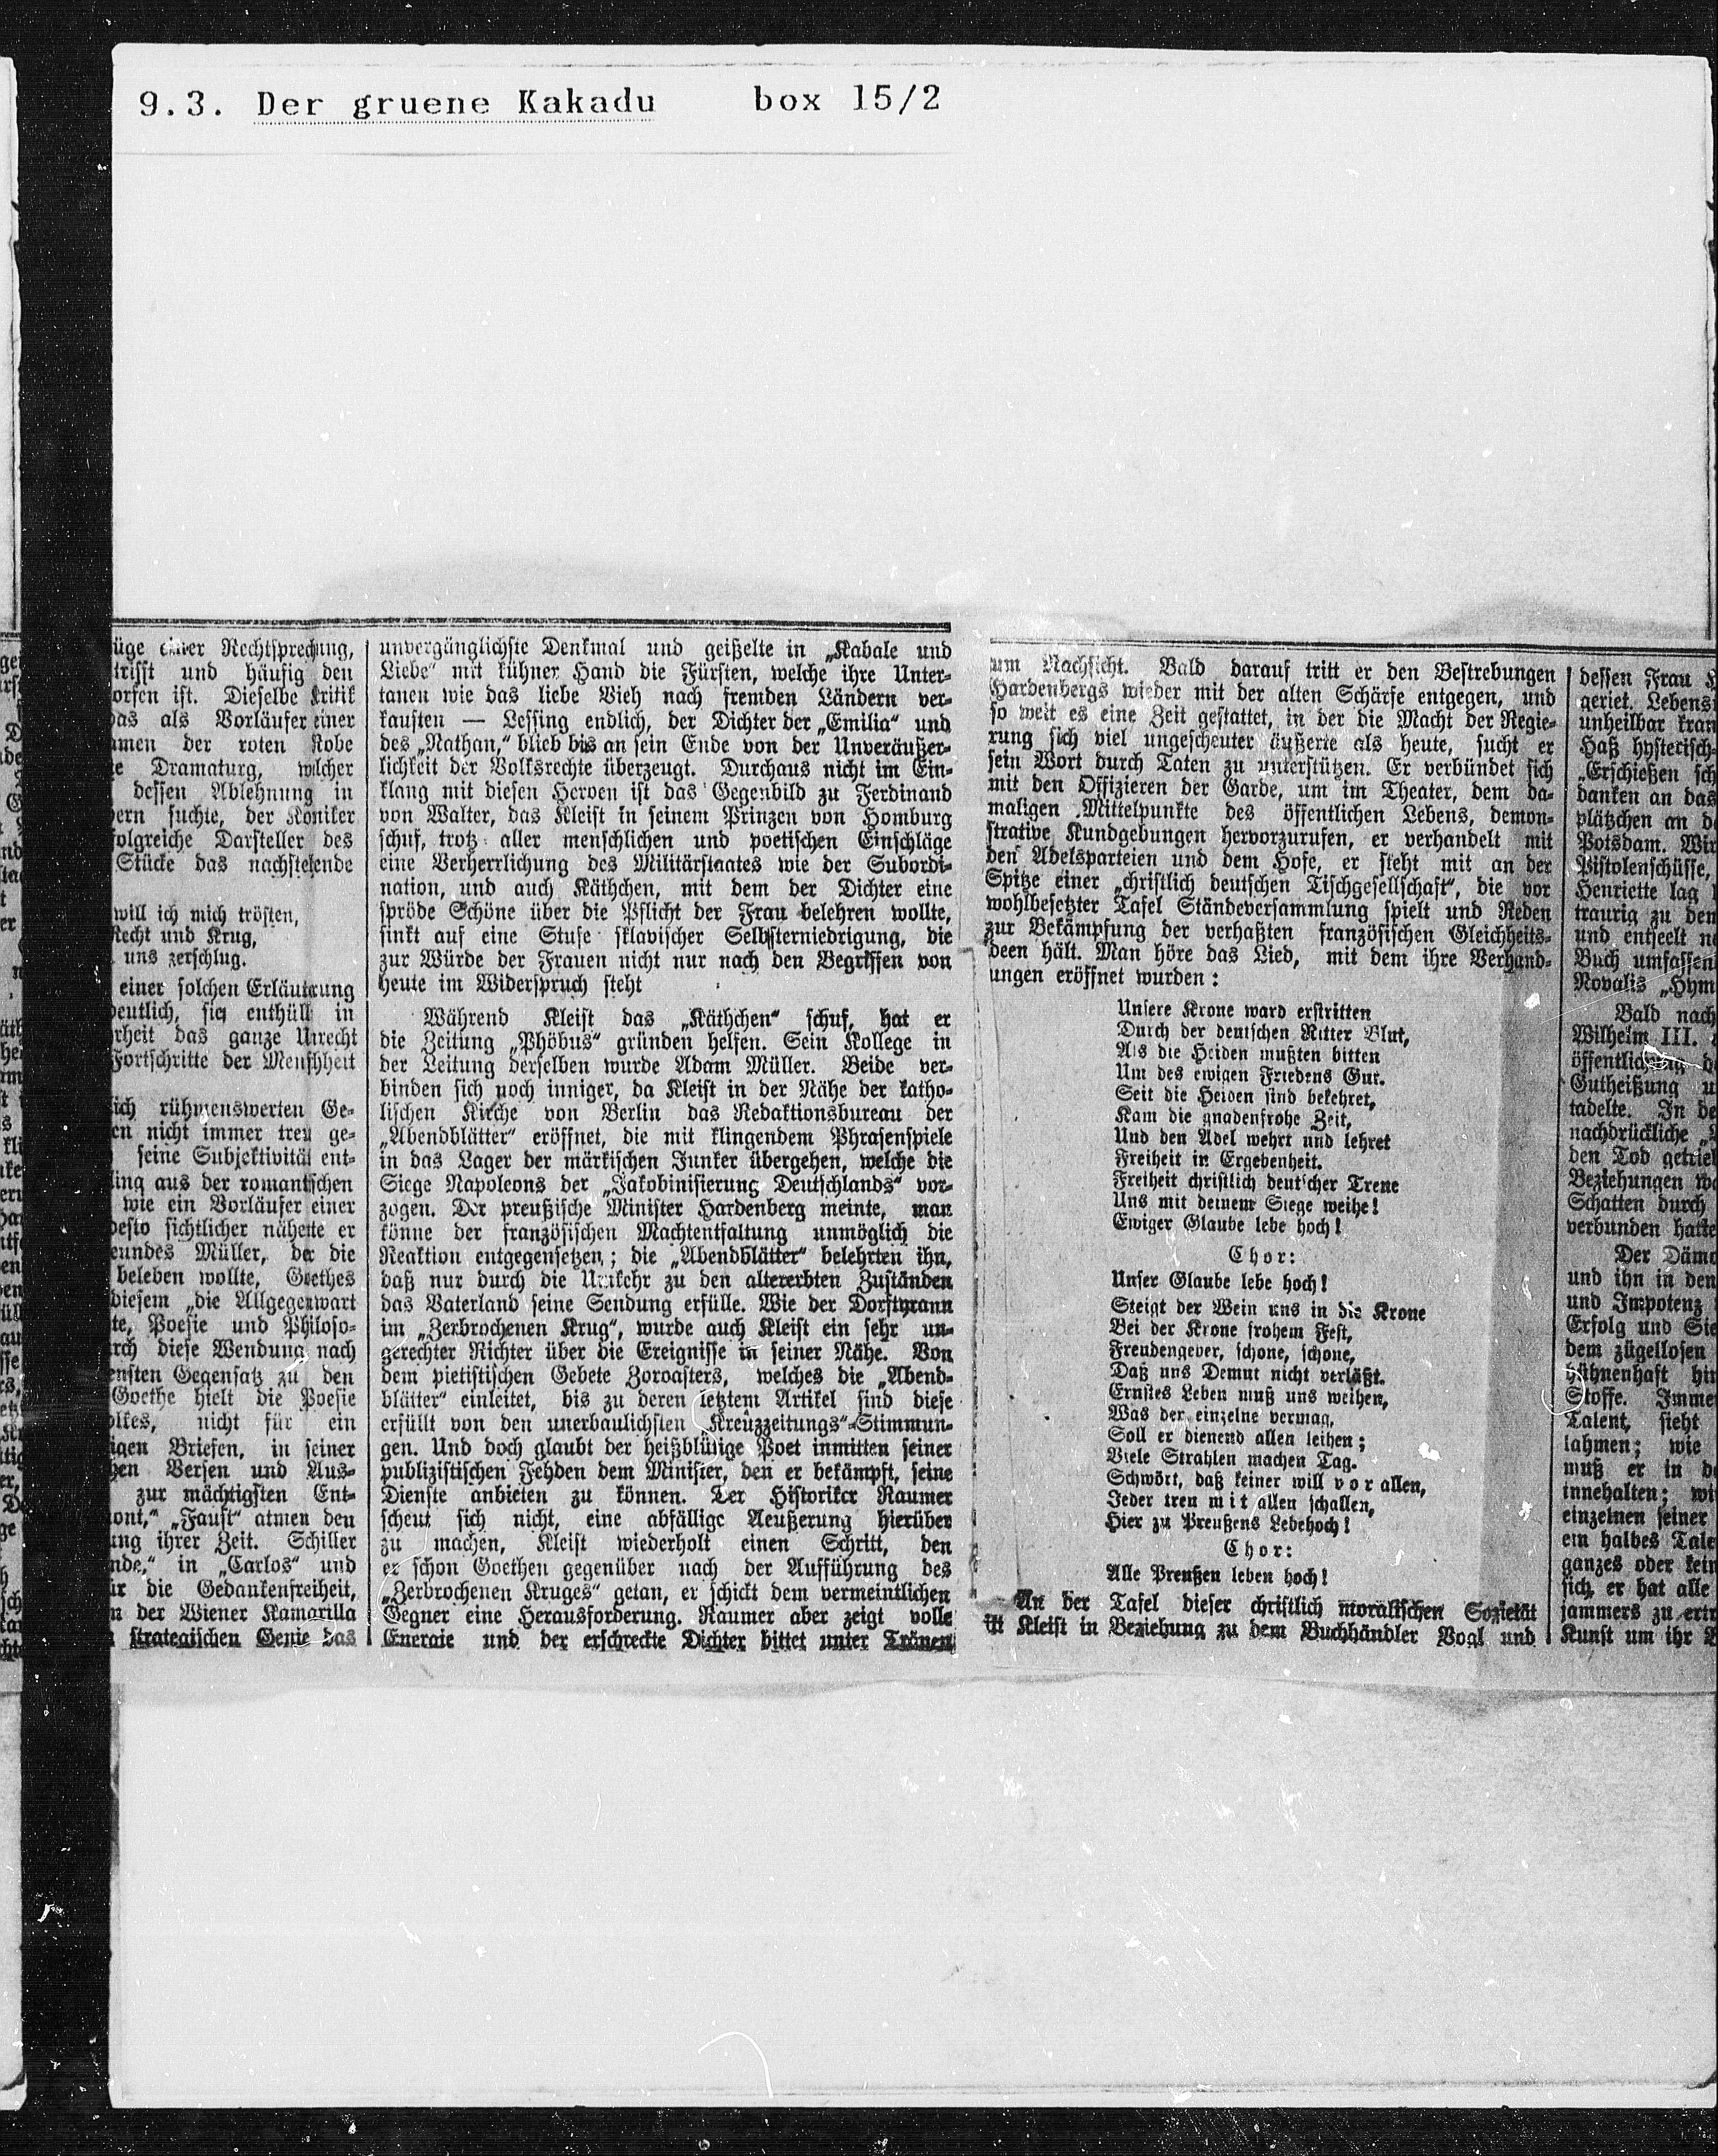 9.3. Der gruene Kakadu box 15/2
üge einer Rechtsprechung,
trifft und häufig den
orfen ist. Dieselbe Kritik
das als Vorläufer einer
men der roten Robe
e Dramaturg, welcher
dessen Ablehnung in
ern suchte, der Komiker
folgreiche Darsteller des
Stücke das nachstehende
will ich mich trösten,
Recht und Krug,
uns zerschlug.
einer solchen Erläuterung
deutlich, sie enthüllt in
rheit das ganze Unrecht
Fortschritte der Menschheit
ich rühmenswerten Ge-
en nicht immer treu ge-
seine Subjektivität ent-
ling aus der romantischen
wie ein Vorläufer einer
desto sichtlicher näherte er
eundes Müller, der die
beleben wollte, Goethes
diesem „die Allgegenwart
te, Poesie und Philoso-
rch diese Wendung nach
ensten Gegensatz zu den
Goethe hielt die Poesie
olkes, nicht für ein
igen Briefen, in seiner
hen Versen und Aus-
zur mächtigsten Ent-
ont,“ „Faust“ atmen den
ung ihrer Zeit. Schiller
nde,“ in „Carlos“ und
ür die Gedankenfreiheit,
n der Wiener Kamarilla
strategischen Genie das
unvergänglichste Denkmal und geißelte in „Kabale und
Liebe“ mit kühner Hand die Fürsten, welche ihre Unter-
tanen wie das liebe Vieh nach fremden Ländern ver-
kauften — Lessing endlich, der Dichter der „Emilia“ und
des „Nathan,“ blieb bis an sein Ende von der Unveräußer-
lichkeit der Volksrechte überzeugt. Durchaus nicht im Ein-
klang mit diesen Heroen ist das Gegenbild zu Ferdinand
von Walter, das Kleist in seinem Prinzen von Homburg
schuf, trotz aller menschlichen und poetischen Einschläge
eine Verherrlichung des Militärstaates wie der Subordi-
nation, und auch Käthchen, mit dem der Dichter eine
spröde Schöne über die Pflicht der Frau belehren wollte,
sinkt auf eine Stufe sklavischer Selbsterniedrigung, die
zur Würde der Frauen nicht nur nach den Begriffen von
heute im Widerspruch steht
Während Kleist das „Käthchen“ schuf, hat er
die Zeitung „Phöbus“ gründen helfen. Sein Kollege in
der Leitung derselben wurde Adam Müller. Beide ver-
binden sich noch inniger, da Kleist in der Nähe der katho-
lischen Kirche von Berlin das Redaktionsbureau der
„Abendblätter“ eröffnet, die mit klingendem Phrasenspiele
in das Lager der märkischen Junker übergehen, welche die
Siege Napoleons der „Jakobinisierung Deutschlands“ vor-
zogen. Der preußische Minister Hardenberg meinte, man
könne der französischen Machtentfaltung unmöglich die
Reaktion entgegensetzen; die „Abendblätter“ belehrten ihn,
daß nur durch die Umkehr zu den altererbten Zuständen
das Vaterland seine Sendung erfülle. Wie der Dorftyrann
im „Zerbrochenen Krug“, wurde auch Kleist ein sehr un-
gerechter Richter über die Ereignisse in seiner Nähe. Von
dem pietistischen Gebete Zoroasters, welches die „Abend-
blätter“ einleitet, bis zu deren letztem Artikel sind diese
erfüllt von den unerbaulichsten „Kreuzzeitungs“-Stimmun-
gen. Und doch glaubt der heißblütige Poet inmitten seiner
publizistischen Fehden dem Minister, den er bekämpft, seine
Dienste anbieten zu können. Der Historiker Raumer
scheut sich nicht, eine abfällige Aeußerung hierüber
zu machen, Kleist wiederholt einen Schritt, den
er schon Goethen gegenüber nach der Aufführung des
„Zerbrochenen Kruges“ getan, er schickt dem vermeintlichen
Gegner eine Herausforderung. Raumer aber zeigt volle
Energie und der erschreckte Dichter bittet unter Tränen
um Nachsicht. Bald darauf tritt er den Bestrebungen
Hardenbergs wieder mit der alten Schärfe entgegen, und
so weit es eine Zeit gestattet, in der die Macht der Regie-
rung sich viel ungescheuter äußerte als heute, sucht er
sein Wort durch Taten zu unterstützen. Er verbündet sich
mit den Offizieren der Garde, um im Theater, dem da-
maligen Mittelpunkte des öffentlichen Lebens, demon-
strative Kundgebungen hervorzurufen, er verhandelt mit
den Adelsparteien und dem Hofe, er steht mit an der
Spitze einer „christlich deutschen Tischgesellschaft“, die vor
wohlbesetzter Tafel Ständeversammlung spielt und Reden
zur Bekämpfung der verhaßten französischen Gleichheits-
deen hält. Man höre das Lied, mit dem ihre Verhand-
ungen eröffnet wurden:
Unsere Krone ward erstritten
Durch der deutschen Ritter Blut,
Als die Heiden mußten bitten
Um des ewigen Friedens Gut.
Seit die Heiden sind bekehret,
Kam die gnadenfrohe Zeit,
Und den Adel wehrt und lehret
Freiheit in Ergebenheit.
Freiheit christlich deutscher Treue
Uns mit deinem Siege weihe!
Ewiger Glaube lebe hoch!
Chor:
Unser Glaube lebe hoch!
Steigt der Wein uns in die Krone
Bei der Krone frohem Fest,
Freudengeber, schone, schone,
Daß uns Demut nicht verläßt.
Ernstes Leben muß uns weihen,
Was der einzelne vermag,
Soll er dienend allen leihen;
Viele Strahlen machen Tag.
Schwört, daß keiner will vor allen,
Jeder treu mit allen schallen,
Hier zu Preußens Lebehoch!
Chor:
Alle Preußen leben hoch!
An der Tafel dieser christlich moralischen Sozietät
ist Kleist in Beziehung zu dem Buchhändler Vogl und
dessen Frau
geriet. Lebens
unheilbar kran
Haß hysterisch
„Erschießen sch
danken an das
plätzchen an d
Potsdam. Wir
Pistolenschüsse,
Henriette lag
traurig zu den
und entseelt n
Buch umfassen
Novalis „Hym
Bald nach
Wilhelm III.
öffentlich
Gutheißung u
tadelte. In de
nachdrückliche
den Tod getrie
Beziehungen
Schatten durch
verbunden hatte
Der Dämo
und ihn in den
und Impotenz
Erfolg und Sie
dem zügellosen
bühnenhaft hin
Stoffe. Imme
Talent, sieht
lahmen; wie
muß er in d
innehalten; wi
einzelnen seiner
ein halbes Tale
ganzes oder kein
sich, er hat alle
jammers zu ertr
Kunst um ihr